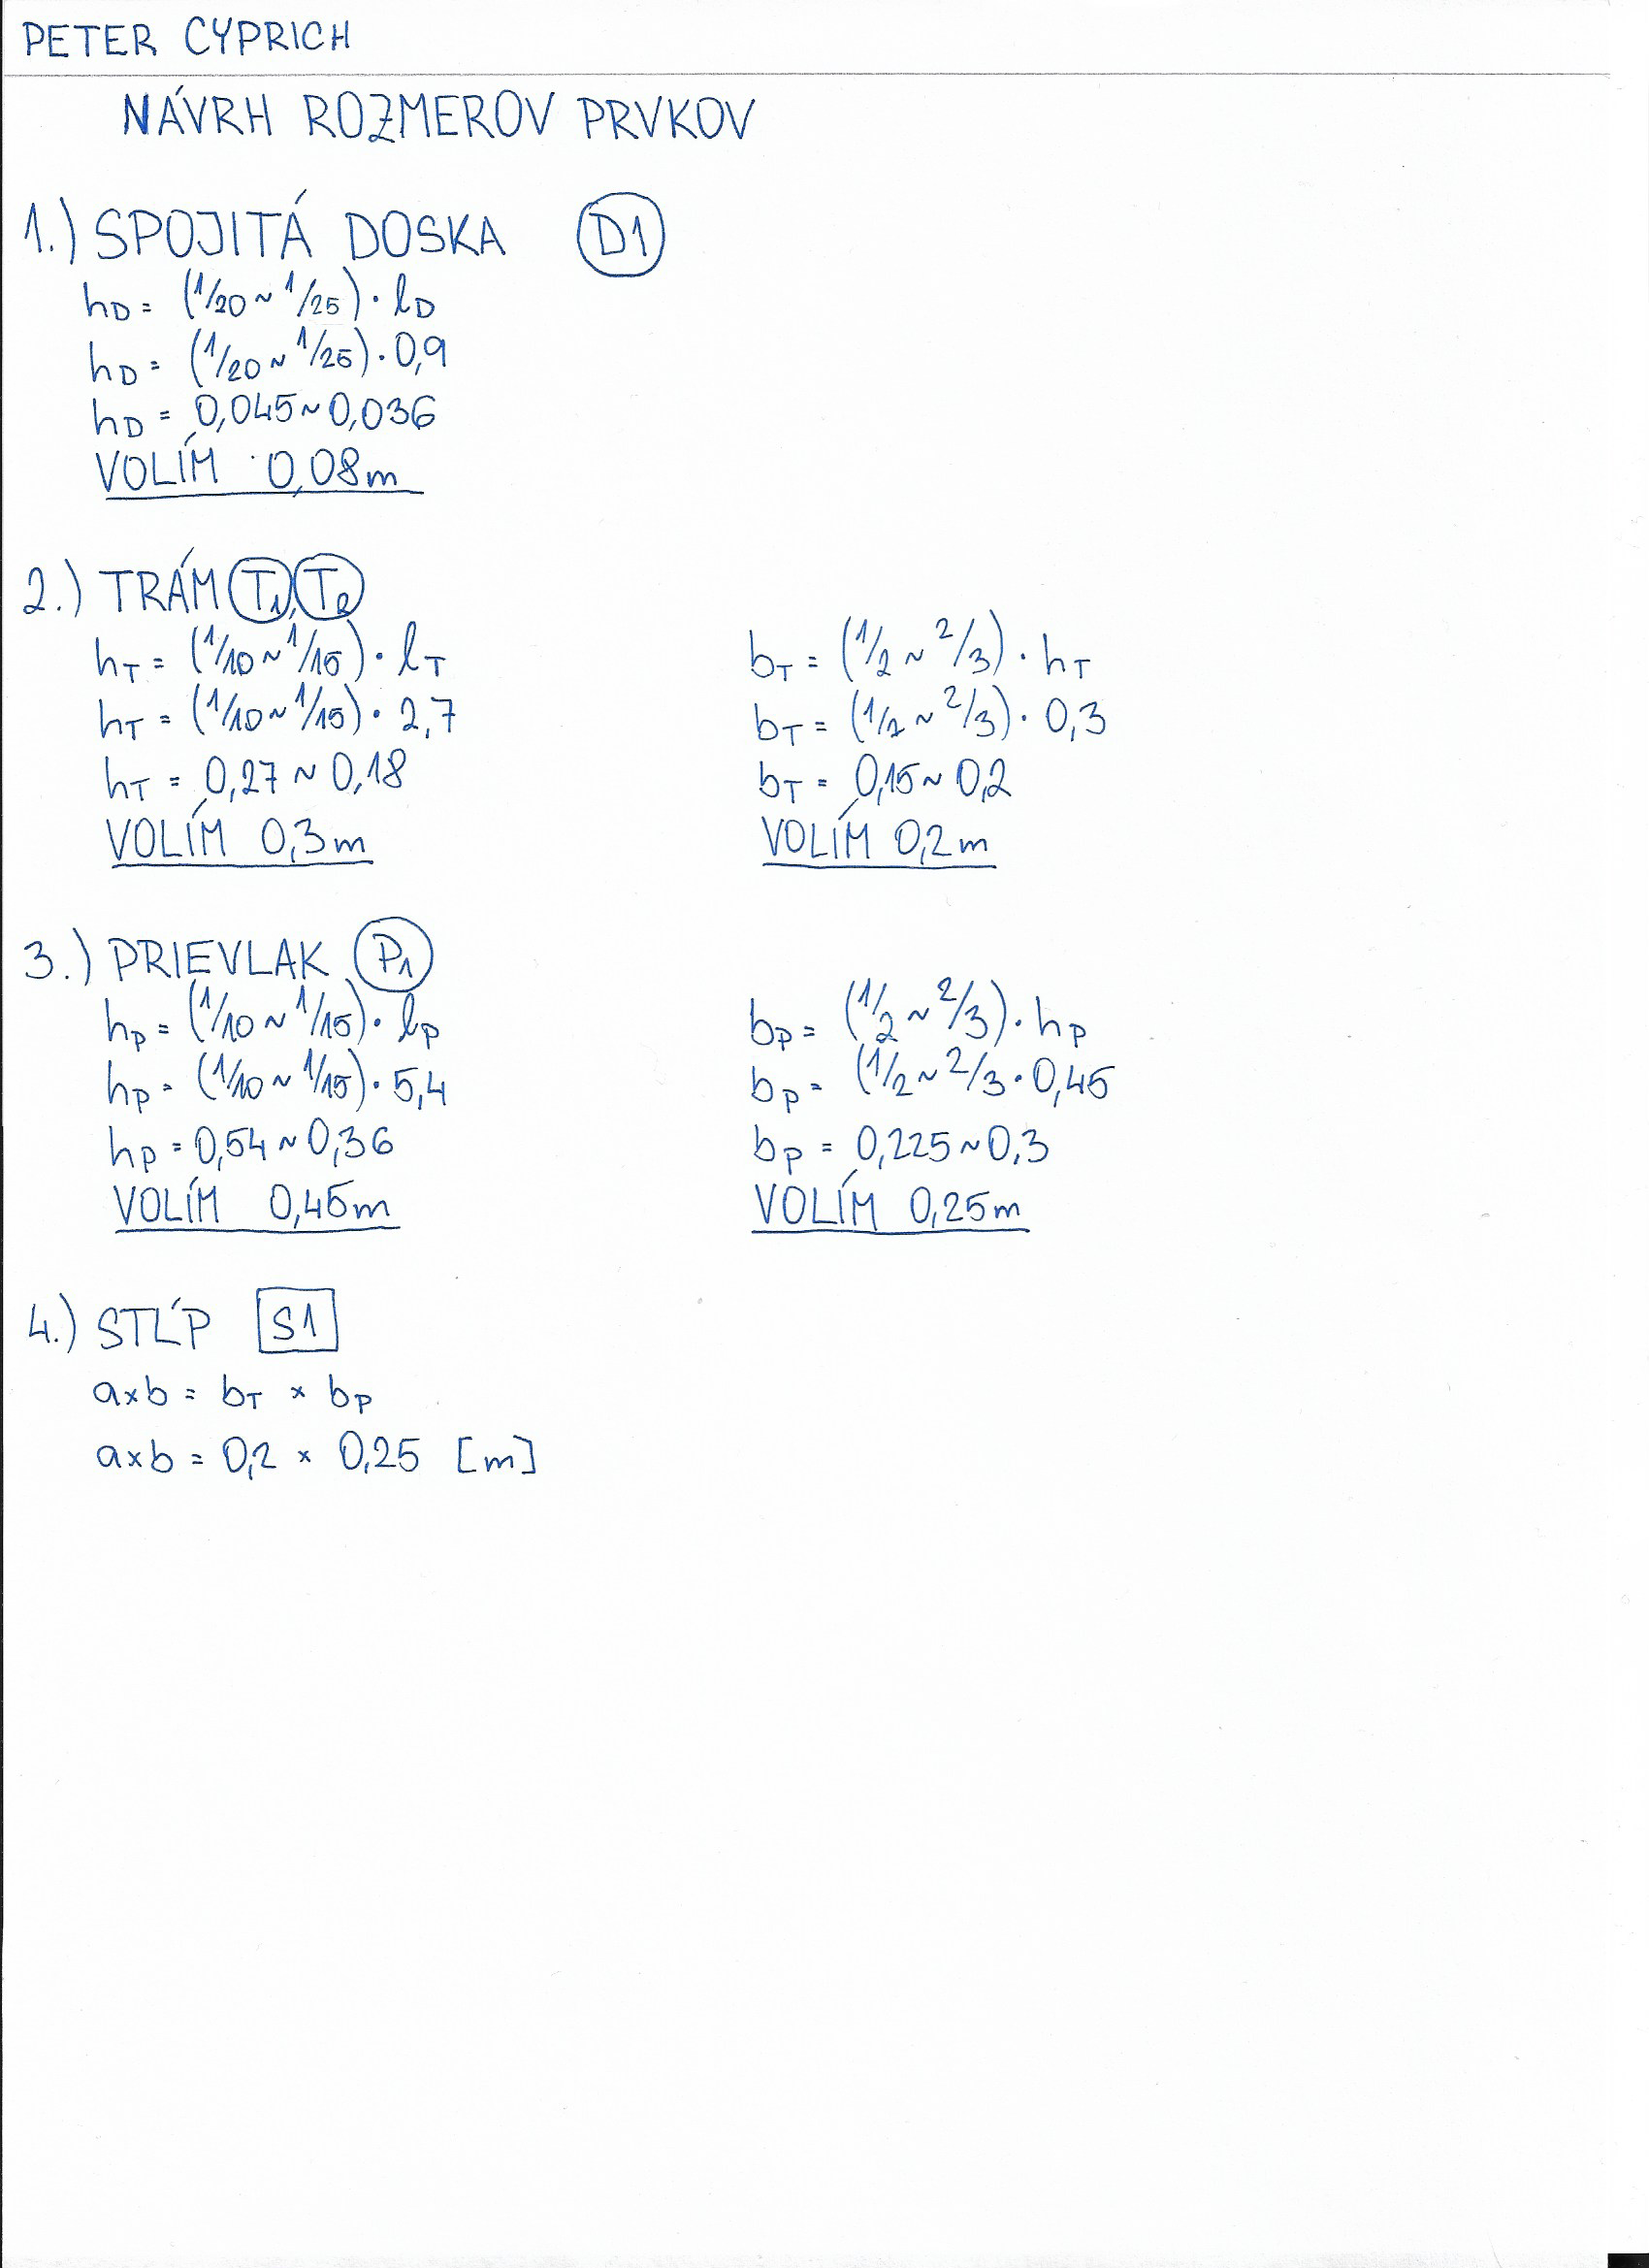 PETER CYPRICH
NÁVRH ROZMEROV PRVKOV
1.) SPOJITÁ DOSKA D1
hD = (1/20 ~ 1/25) · lD
hD = (1/20 ~ 1/25) · 0,9
hD = 0,045 ~ 0,036
VOLÍM 0,08m
2.) TRÁM T1, T2
hT = (1/10 ~ 1/15) · lT
hT = (1/10 ~ 1/15) · 2,7
hT = 0,27 ~ 0,18
VOLÍM 0,3m
bT = (1/2 ~ 2/3) · hT
bT = (1/2 ~ 2/3) · 0,3
bT = 0,15 ~ 0,2
VOLÍM 0,2m
3.) PRIEVLAK P1
hP = (1/10 ~ 1/15) · lP
hP = (1/10 ~ 1/15) · 5,4
hP = 0,54 ~ 0,36
VOLÍM 0,45m
bP = (1/2 ~ 2/3) · hP
bP = (1/2 ~ 2/3 · 0,45
bP = 0,225 ~ 0,3
VOLÍM 0,25m
4.) STĹP S1
a×b = bT × bP
a×b = 0,2 × 0,25 [m]